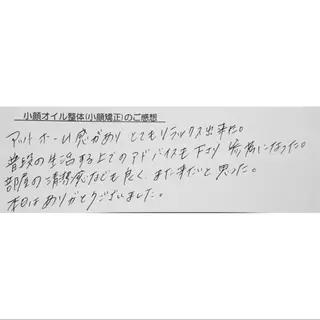 小顔オイル整体(小顔矯正)のご感想
アットホーム感があり とてもリラックス出来た。
普段の生活する上でのアドバイスも下さり 参考になった。
部屋の清潔感なども良く、また来たいと思った。
本日はありがとうございました。